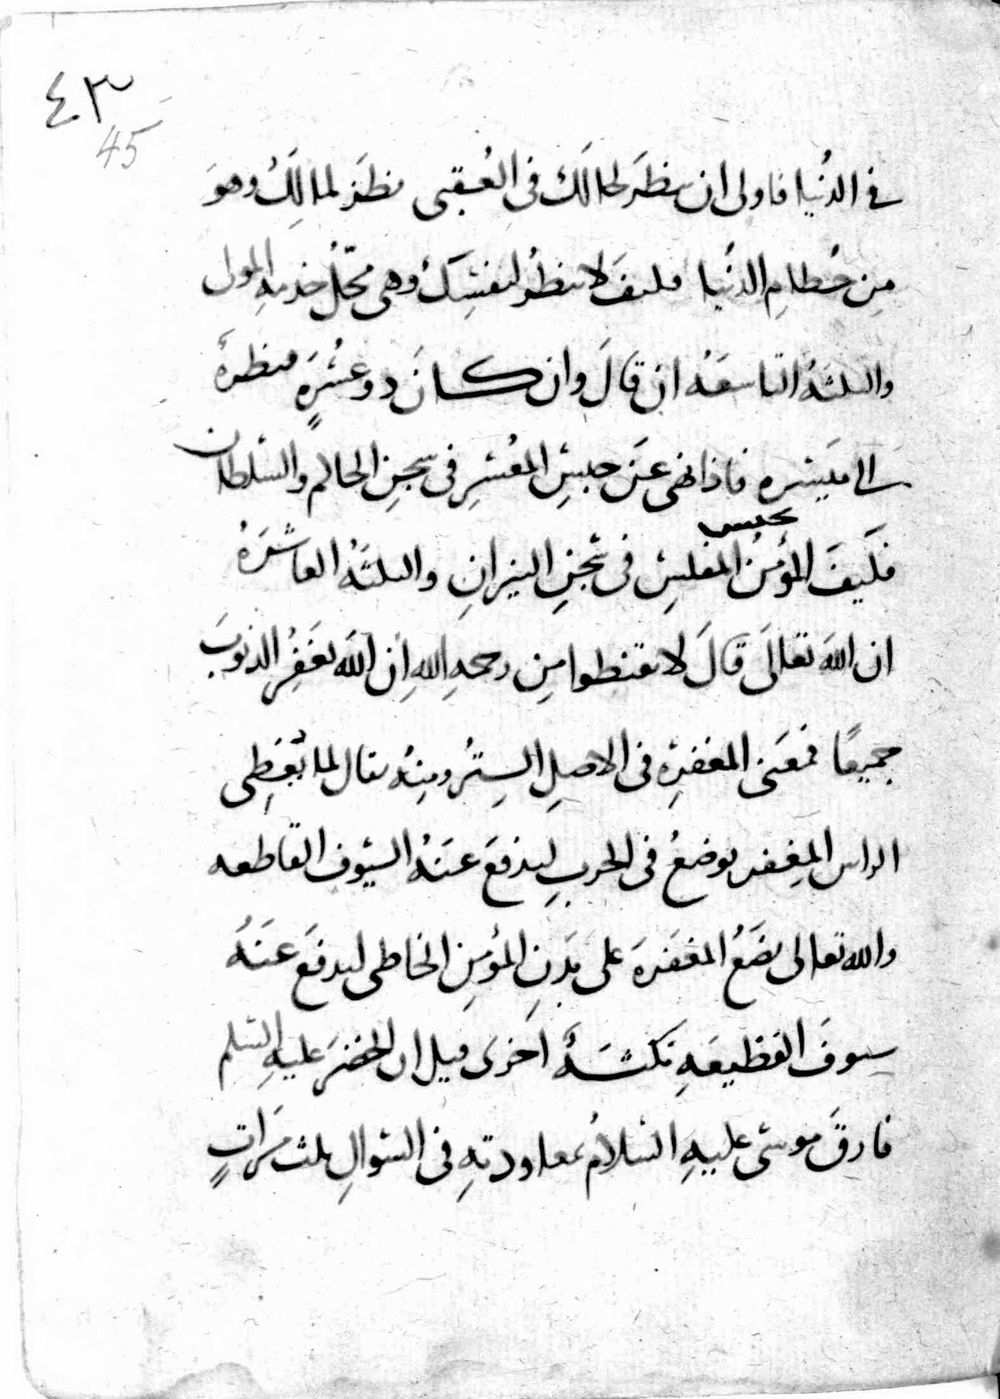 ٤٣
45
في الدُنيا فاولى ان ينظرَ لحالكَ في العُقبى نظَرَ لمالكَ وهوَ
مِن حُطامِ الدنُيا فكيفَ لا ينظرُ لنفسِكَ وهى محَلُ خدمةِ المولى
والنكتة التاسعَهُ ان قالَ وان كانَ ذو عُسْرَةٍ فنظرةٌ
الى ميسَره فاذا نهى عَن حبسِ المعُسِر فى سجنِ الحاكم والسلطان
فكيفَ يحبس المؤمنُ المفلسِ فى سجنِ النيرانِ والنكتَهُ العاشرَهُ
ان اللهَ تعالَى قَالَ لا تقنطوا مِن رحمةِ اللهِ ان اللهَ يغَفِرُ الذنوبَ
جميعًا فمعَنى المغفرِه فى الاصلِ السِترُ ومِنهُ يقال لما يُغطِى
الراس المِغفر يوضعُ فى الحربِ ليدفعَ عَنهُ السيُوف القاطعه
والله تعالى يضَعُ المغفَرةَ على بدَنِ المؤمِنِ الخاطى ليدفَعَ عنَهُ
سيوفَ القطيعَهِ نكتَهُ اخرى قيل ان الخضرَ عليهِ السلم
فارقَ موسى عليهِ السَلامُ بمعاودتِهِ فى السُوالِ ثلث مَراتٍ